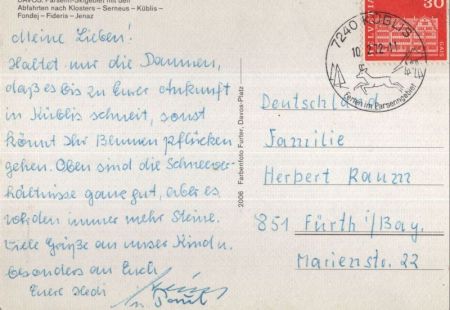 DAVOS: Parsenn-Skigebiet mit den
Abfahrten nach Klosters – Serneus – Küblis –
Fondej – Fideris – Jenaz
Meine Lieben!
Haltet nur die Daumen,
daß es bis zu Eurer Ankunft
in Küblis schneit, sonst
könnt Ihr Blumen pflücken
gehen. Oben sind die Schneever-
hältnisse ganz gut, aber es
werden immer mehr Steine.
Viele Grüße an unser Kind u.
besonders an Euch
Eure Hedi
u. Paul
2006 Farbenfoto Furter, Davos-Platz
7240 KÜBLIS
10. 2.72-11
Ferien im Parsenngebiet
HELVETIA
30
GAIS
Deutschland
Familie
Herbert Raum
851 Fürth i/Bay.
Marienstr. 22